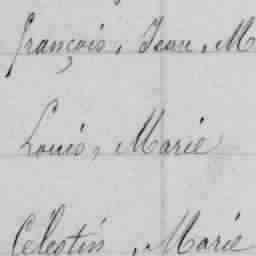 françois, Jean, M
Louis, Marie
Celestin, Marie